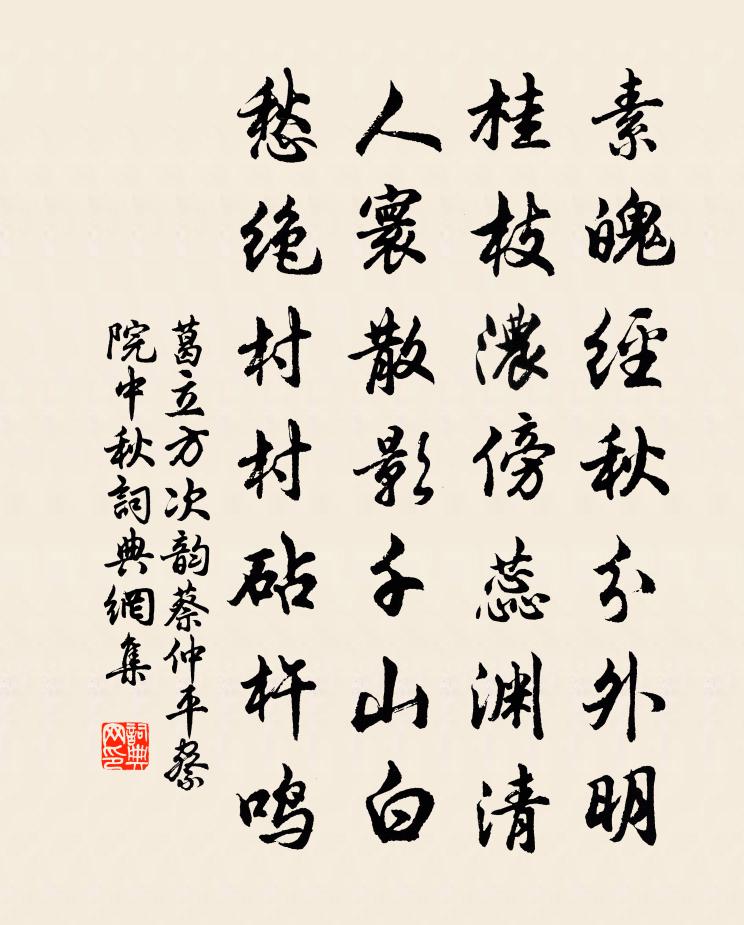 素魄經秋分外明
桂枝濃傍蕊渊清
人寰散影千山白
愁绝村村砧杵鸣
葛立方次韵蔡仲平祭
院中秋詞典網集
詞典网印